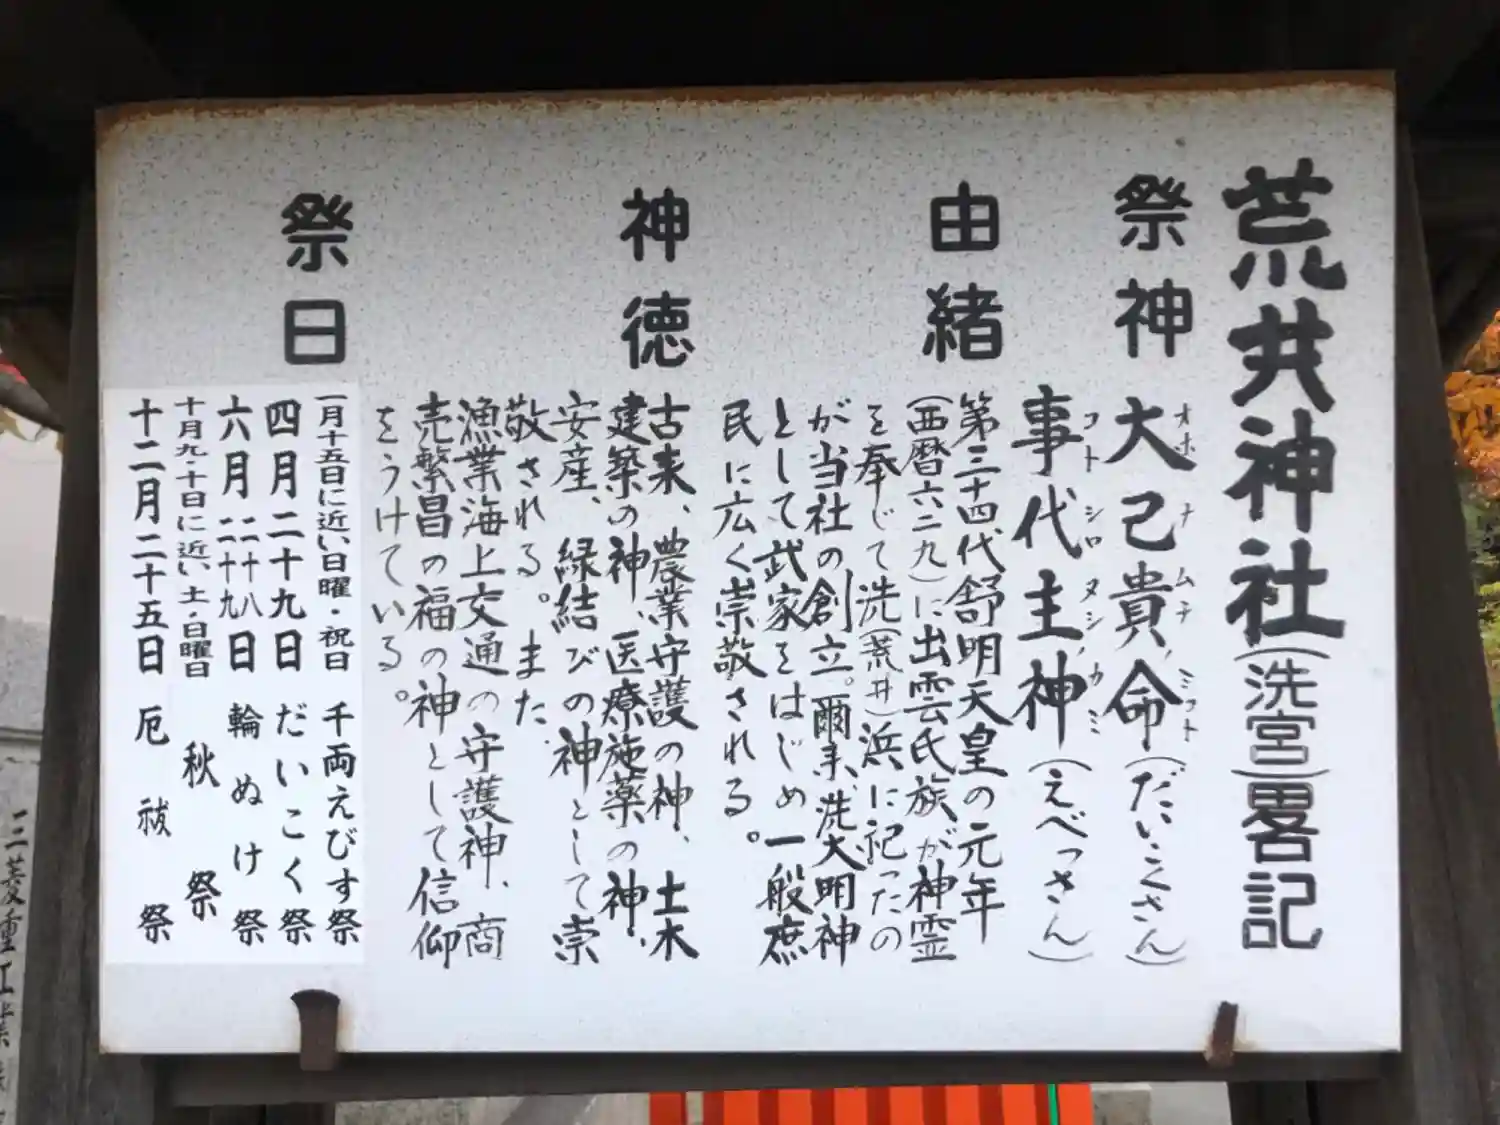 荒井神社(洗宮)畧記
祭神
大己貴命(だいこくさん)
オホ ナ ムチ ノ ミコト
事代主神(えべっさん)
コト シロ ヌシ ノ カミ
由緒
第三十四代舒明天皇の元年
(西暦六二九)に出雲氏族が神霊
を奉じて洗(荒井)浜に祀ったの
が当社の創立。爾来、洗大明神
として武家をはじめ一般庶
民に広く崇敬される。
神徳
古来、農業守護の神、土木
建築の神、医療施薬の神、
安産、縁結びの神として崇
敬される。また、
漁業海上交通の守護神、商
売繁昌の福の神として信仰
をうけている。
祭日
一月十五日に近い日曜・祝日 千両えびす祭
四月二十九日 だいこく祭
六月二十八二十九日 輪ぬけ祭
十月九・十日に近い土・日曜日 秋祭
十二月二十五日 厄祓祭
三菱重工業